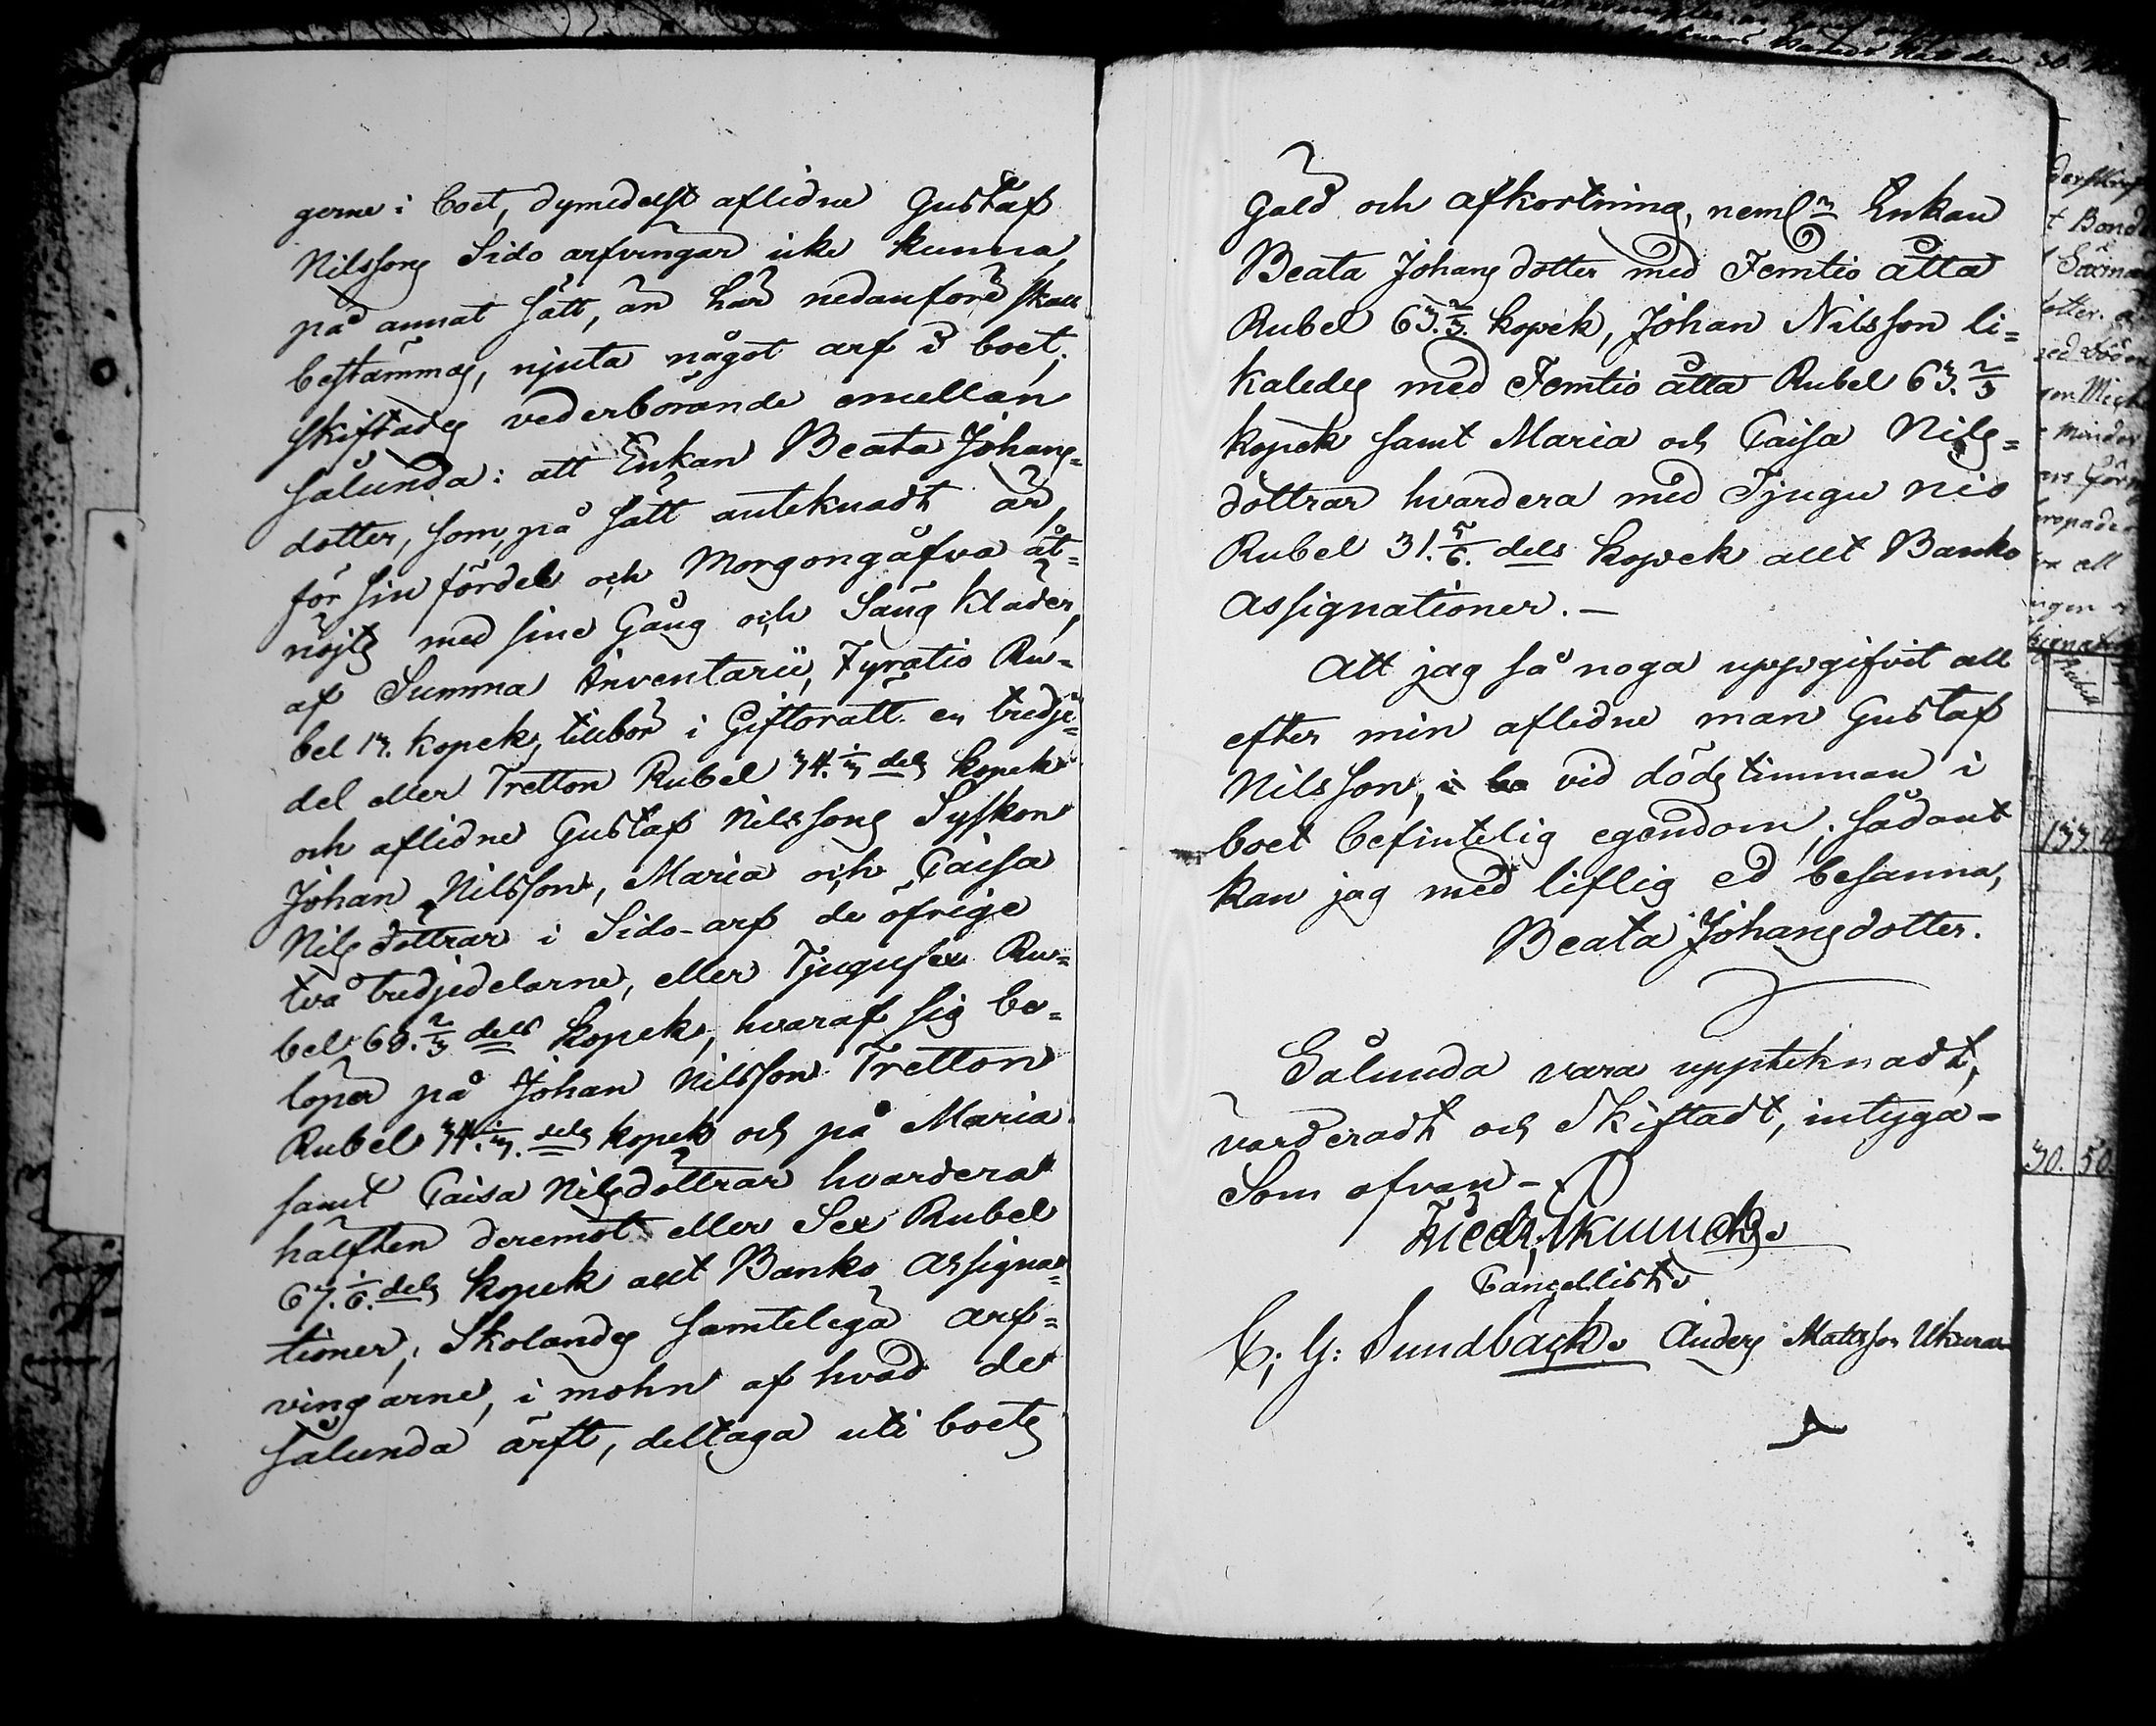 gerne i boet, dymedelst aflidne Gustaf
Nilssons Sido arfvingar icke kunna,
på annat sätt, än här nedanföre skall
bestämmas, njuta något arf i boet;
skiftades vederbörande emellan
sålunda: att Enkan Beata Johans=
dotter, som, på sätt anteknadt är,
för sin fördel och Morgongåfva åt=
nöjts med sine Gång och Säng Kläder,
af Summa Inventarii, Fyratio Ru=
bel 13. kopek, tillbör i Giftorätt en tredje=
del eller Tretton Rubel 34.1/3 dels kopek
och aflidne Gustaf Nilssons Syskon
Johan Nilsson, Maria och Caisa
Nils döttrar i Sido-arf de öfrige
två tredjedelarne, eller Tjugusex Ru=
bel 68.2/3 dels kopek, hvaraf sig be=
löper på Johan Nilsson Tretton
Rubel 34.1/3. dels kopek och på Maria
samt Caisa Nilsdöttrar hvardera
hälften deremot eller Sex Rubel
67.1/6. dels kopek allt Banko Assigna=
tioner; Skolandes samtelega arf=
vingarne, i mohn af hvad de
sålunda ärft, deltaga uti boets
Gäld och afkortning, neml:n Enkan
Beata Johans dotter med Femtio åtta
Rubel 63.2/3. kopek, Johan Nilsson li=
kaledes med Femtio åtta Rubel 63.2/3
kopek samt Maria och Caisa Nils=
döttrar hvardera med Tjugu nio
Rubel 31.5/6. dels kopek allt Banko
Assignationer.—
Att jag så noga uppgifvit all
efter min aflidne man Gustaf
Nilsson, i bo vid döds timman i
boet befintelig egendom; sådant
kan jag med liflig ed besanna,
Beata Johansdotter.
Sålunda vara uppteknadt,
värderadt och Skiftadt, intyga=
Som ofvan—
Cancellist
C. G: Sundbäck. Anders Mattsson
133
30. 50